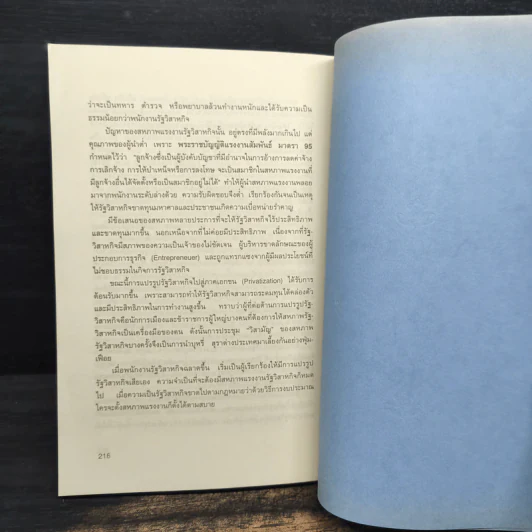 ว่าจะเป็นทหาร ตำรวจ หรือพยาบาลล้วนทำงานหนักและได้รับความเป็น
ธรรมน้อยกว่าพนักงานรัฐวิสาหกิจ
ปัญหาของสหภาพแรงงานรัฐวิสาหกิจนั้น อยู่ตรงที่มีพลังมากเกินไป แต่
คุณภาพของผู้นำต่ำ เพราะ พระราชบัญญัติแรงงานสัมพันธ์ มาตรา 95
กำหนดไว้ว่า "ลูกจ้างซึ่งเป็นผู้บังคับบัญชาที่มีอำนาจในการจ้างการลดค่าจ้าง
การเลิกจ้าง การให้บำเหน็จหรือการลงโทษ จะเป็นสมาชิกในสหภาพแรงงานที่
มีลูกจ้างอื่นได้จัดตั้งหรือเป็นสมาชิกอยู่ไม่ได้" ทำให้ผู้นำสหภาพแรงงานพลอย
มาจากพนักงานระดับล่างด้วย ความรับผิดชอบจึงต่ำ เรียกร้องกันจนเป็นเหตุ
ให้รัฐวิสาหกิจขาดทุนมหาศาลและประชาชนเกิดความเบื่อหน่ายรำคาญ
มีข้อเสนอของสหภาพหลายประการที่จะให้รัฐวิสาหกิจไร้ประสิทธิภาพ
และขาดทุนมากขึ้น นอกเหนือจากที่ไม่ค่อยมีประสิทธิภาพ เนื่องจากที่รัฐ-
วิสาหกิจมีสภาพของความเป็นเจ้าของไม่ชัดเจน ผู้บริหารขาดลักษณะของผู้
ประกอบการธุรกิจ (Entrepreneuer) และถูกแทรกแซงจากผู้มีผลประโยชน์ที่
ไม่ชอบธรรมในกิจการรัฐวิสาหกิจ
ขณะนี้การแปรรูปรัฐวิสาหกิจไปสู่ภาคเอกชน (Privatization) ได้รับการ
ต้อนรับมากขึ้น เพราะสามารถทำให้รัฐวิสาหกิจสามารถระดมทุนได้คล่องตัว
และมีประสิทธิภาพในการทำงานสูงขึ้น ทราบว่าผู้ที่ต่อต้านการแปรรูปรัฐ-
วิสาหกิจคือนักการเมืองและข้าราชการผู้ใหญ่บางคนที่ต้องการให้สหภาพรัฐ-
วิสาหกิจเป็นเครื่องมือของตน ดังนั้นการประชุม "วิสามัญ" ของสหภาพ
รัฐวิสาหกิจบางครั้งจึงเป็นการนำบุหรี่ สุราต่างประเทศมาเลี้ยงกันอย่างฟุ่ม-
เฟือย
เมื่อพนักงานรัฐวิสาหกิจฉลาดขึ้น เริ่มเป็นผู้เรียกร้องให้มีการแปรรูป
รัฐวิสาหกิจเสียเอง ความจำเป็นที่จะต้องมีสหภาพแรงงานรัฐวิสาหกิจก็หมด
ไป เมื่อความเป็นรัฐวิสาหกิจขาดไปตามกฎหมายว่าด้วยวิธีการงบประมาณ
ใครจะตั้งสหภาพแรงงานก็ตั้งได้ตามสบาย
216